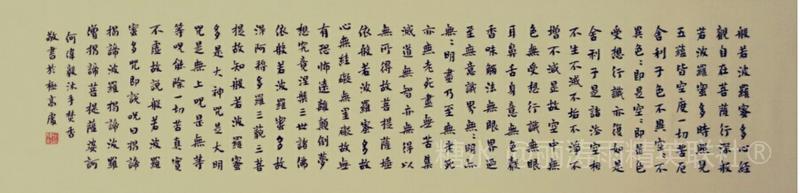 般若波羅蜜多心經
觀自在菩薩行深般
若波羅蜜多時照見
五蘊皆空度一切苦厄
舍利子色不異空々不
異色々即是空々即是色
受想行識亦復如是
舍利子是諸法空相
不生不滅不垢不淨不
增不減是故空中無
色無受想行識無眼
耳鼻舌身意無色聲
香味觸法無眼界迺
至無意識界無無明亦
無々明盡乃至無老死
亦無老死盡無苦集
滅道無智亦無得以
無所得故菩提薩埵
依般若波羅蜜多故
心無罣礙無罣礙故無
有恐怖遠離顛倒夢
想究竟涅槃三世諸佛
依般若波羅蜜多故
得阿耨多羅三藐三菩
提故知般若波羅蜜
多是大神咒是大明
咒是無上咒是無等
等咒能除一切苦真實
不虛故說般若波羅
蜜多咒即說咒曰揭諦
揭諦波羅揭諦波羅
僧揭諦菩提薩婆訶
何偉毅沐手焚香
敬書於
糖水
雨精英联社®